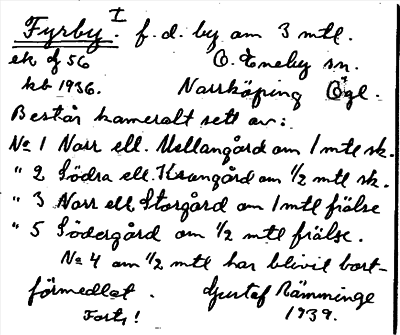 Fyrby. I f.d. by om 3 mtl.
ek bf 56 Ö. Eneby sn.
kb 1936. Norrköping Ögl.
Består kameralt sett av:
No 1 Norr ell. Mellangård om 1 mtl sk.
" 2 Södra ell. Krongård om 1/2 mtl sk.
" 3 Norr ell. Storgård om 1 mtl frälse
" 5 Södergård om 1/2 mtl frälse.
No 4 om 1/2 mtl har blivit bort-
förmedlat. Gustaf Rämminge
Forts! 1939.